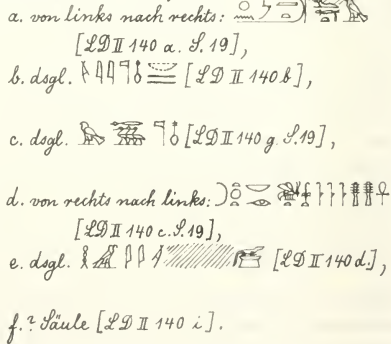 a. von links nach rechts:
[LD II 140 a. S. 19],
b. dsgl. [LD II 140 b],
c. dsgl. [LD II 140 g. S. 19],
d. von rechts nach links:
[LD II 140 c. S. 19],
e. dsgl. [LD II 140 d.],
f. ? Säule [LD II 140 i].